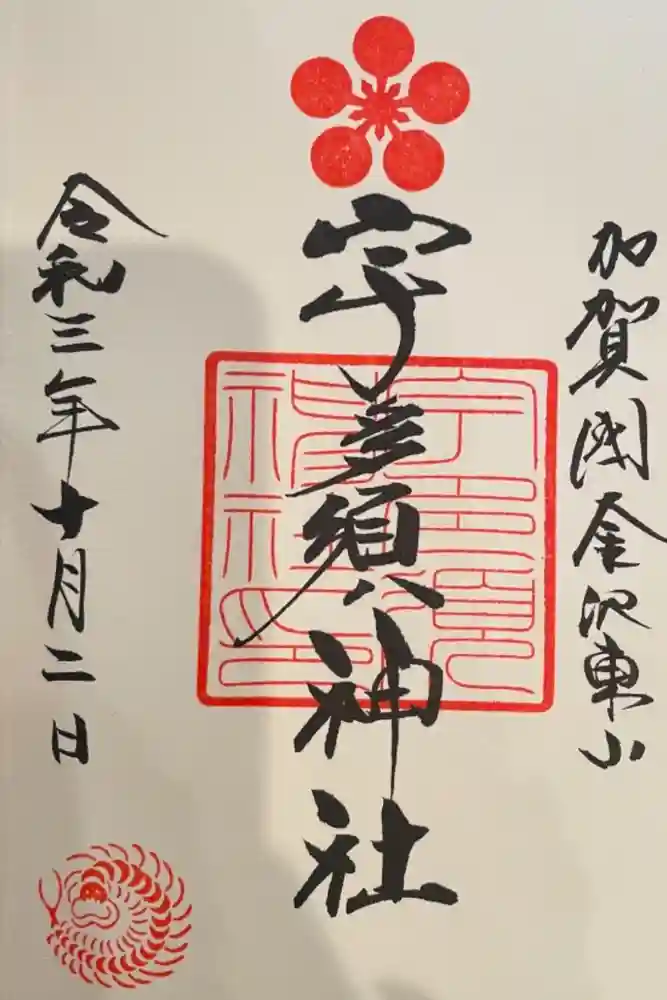 加賀國金沢東山
宇多須神社
令和三年十月二日